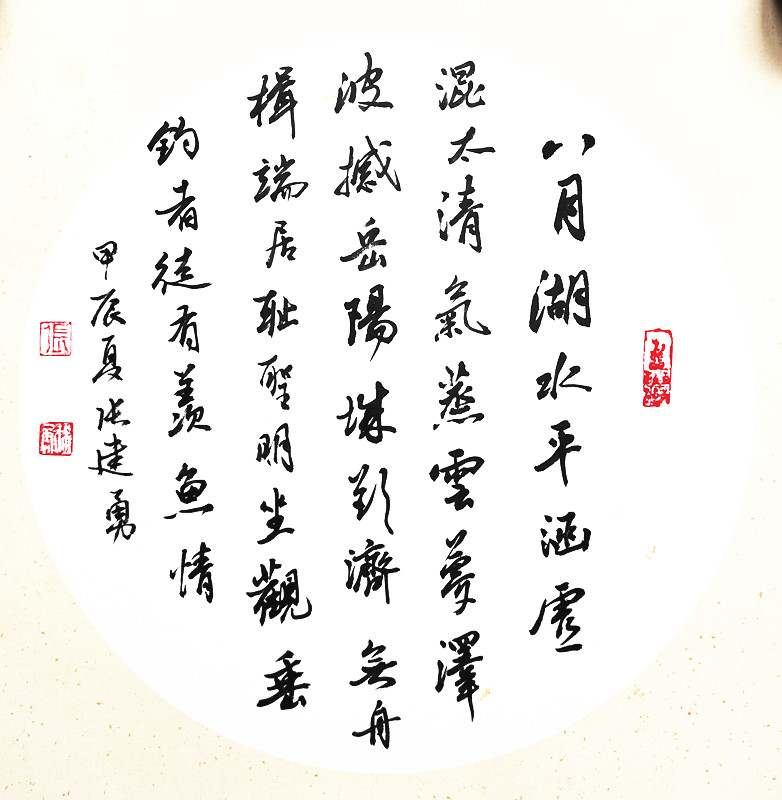 八月湖水平涵虛
混太清氣蒸雲夢澤
波撼岳陽城欲濟無舟
楫端居耻聖明坐觀垂
釣者徒有羨魚情
甲辰夏张建勇